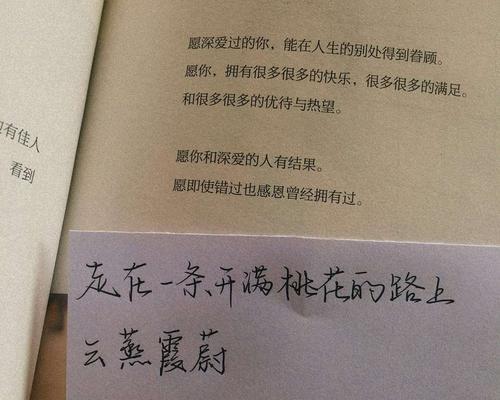 有佳人
看到
愿深爱过的你，能在人生的别处得到眷顾。
愿你，拥有很多很多的快乐，很多很多的满足。
和很多很多的优待与热望。
愿你和深爱的人有结果。
愿即使错过也感恩曾经拥有过。
走在一条开满桃花的路上
云蒸霞蔚